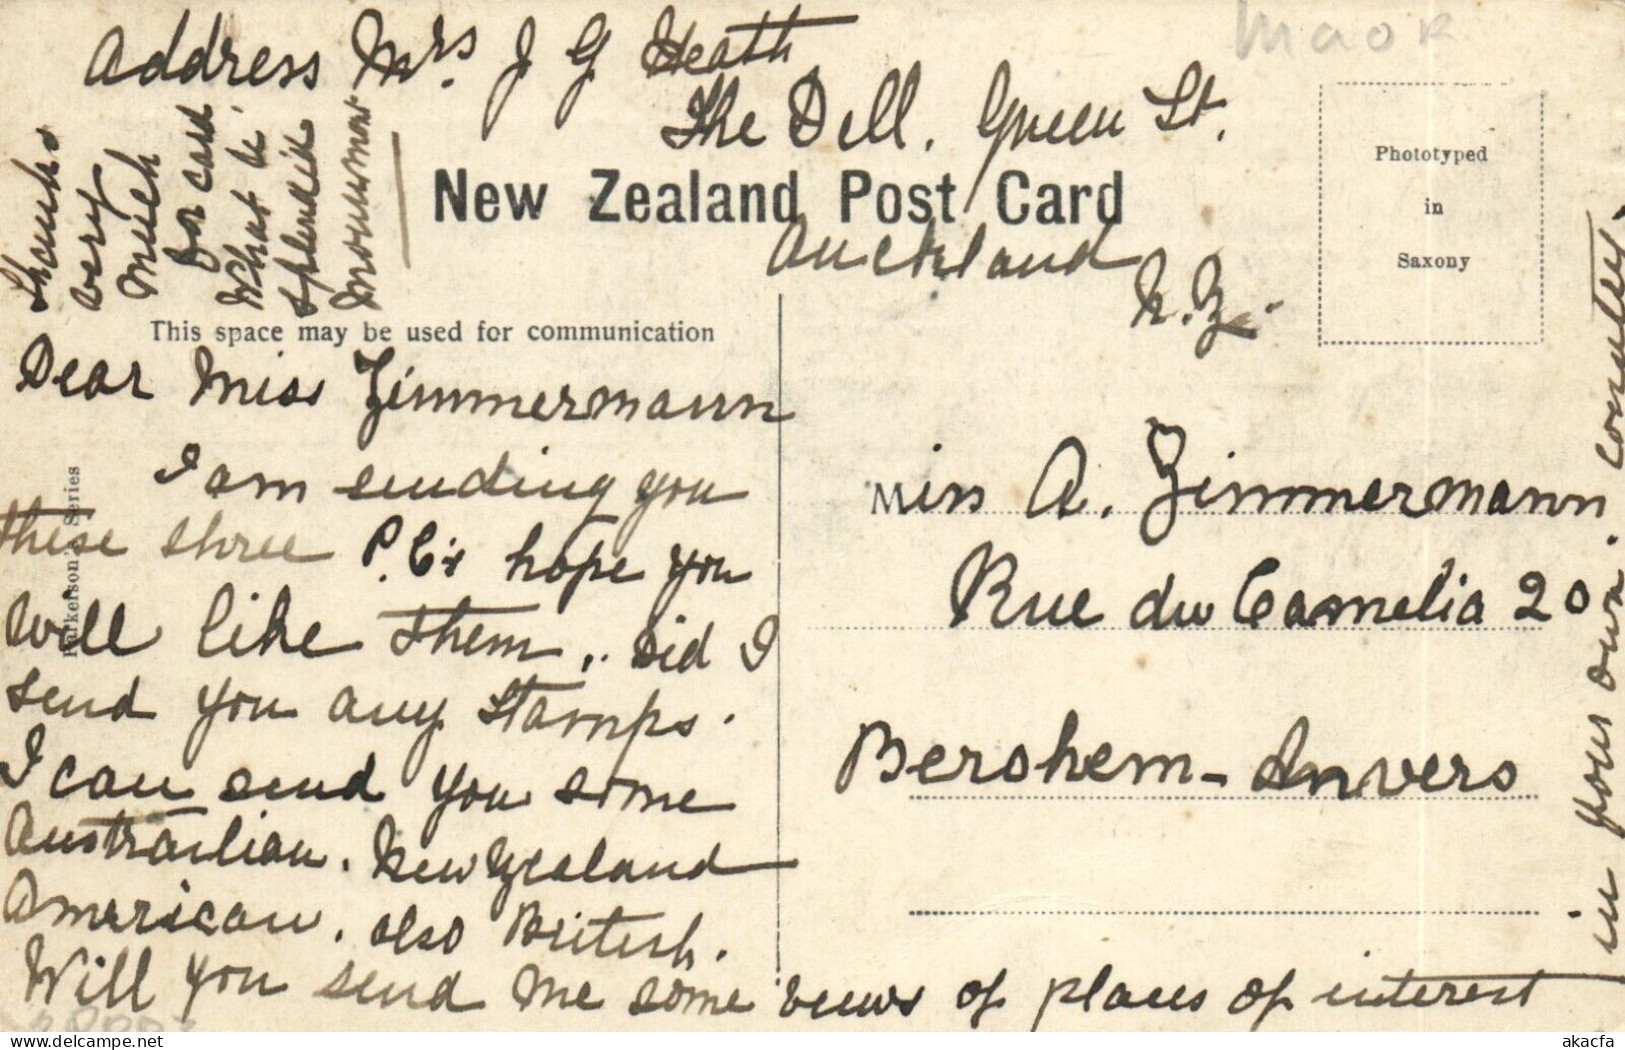 Maor
Address Mrs. J G Heath
The Dell. Green St.
Auckland
N.Z.
Thanks
very
much
for card
What a
splendid
monument
New Zealand Post Card
Phototyped
in
Saxony
This space may be used for communication
Dear Miss Zimmermann
I am sending you
these three P.C's hope you
will like them. Did I
send you any stamps.
I can send you some
Australian. New Zealand
American. also British.
Will you send me some views of places of interest
in your own country.
Series
Miss A. Zimmermann.
Rue du Camelia 20
Berchem-Anvers
akacfa